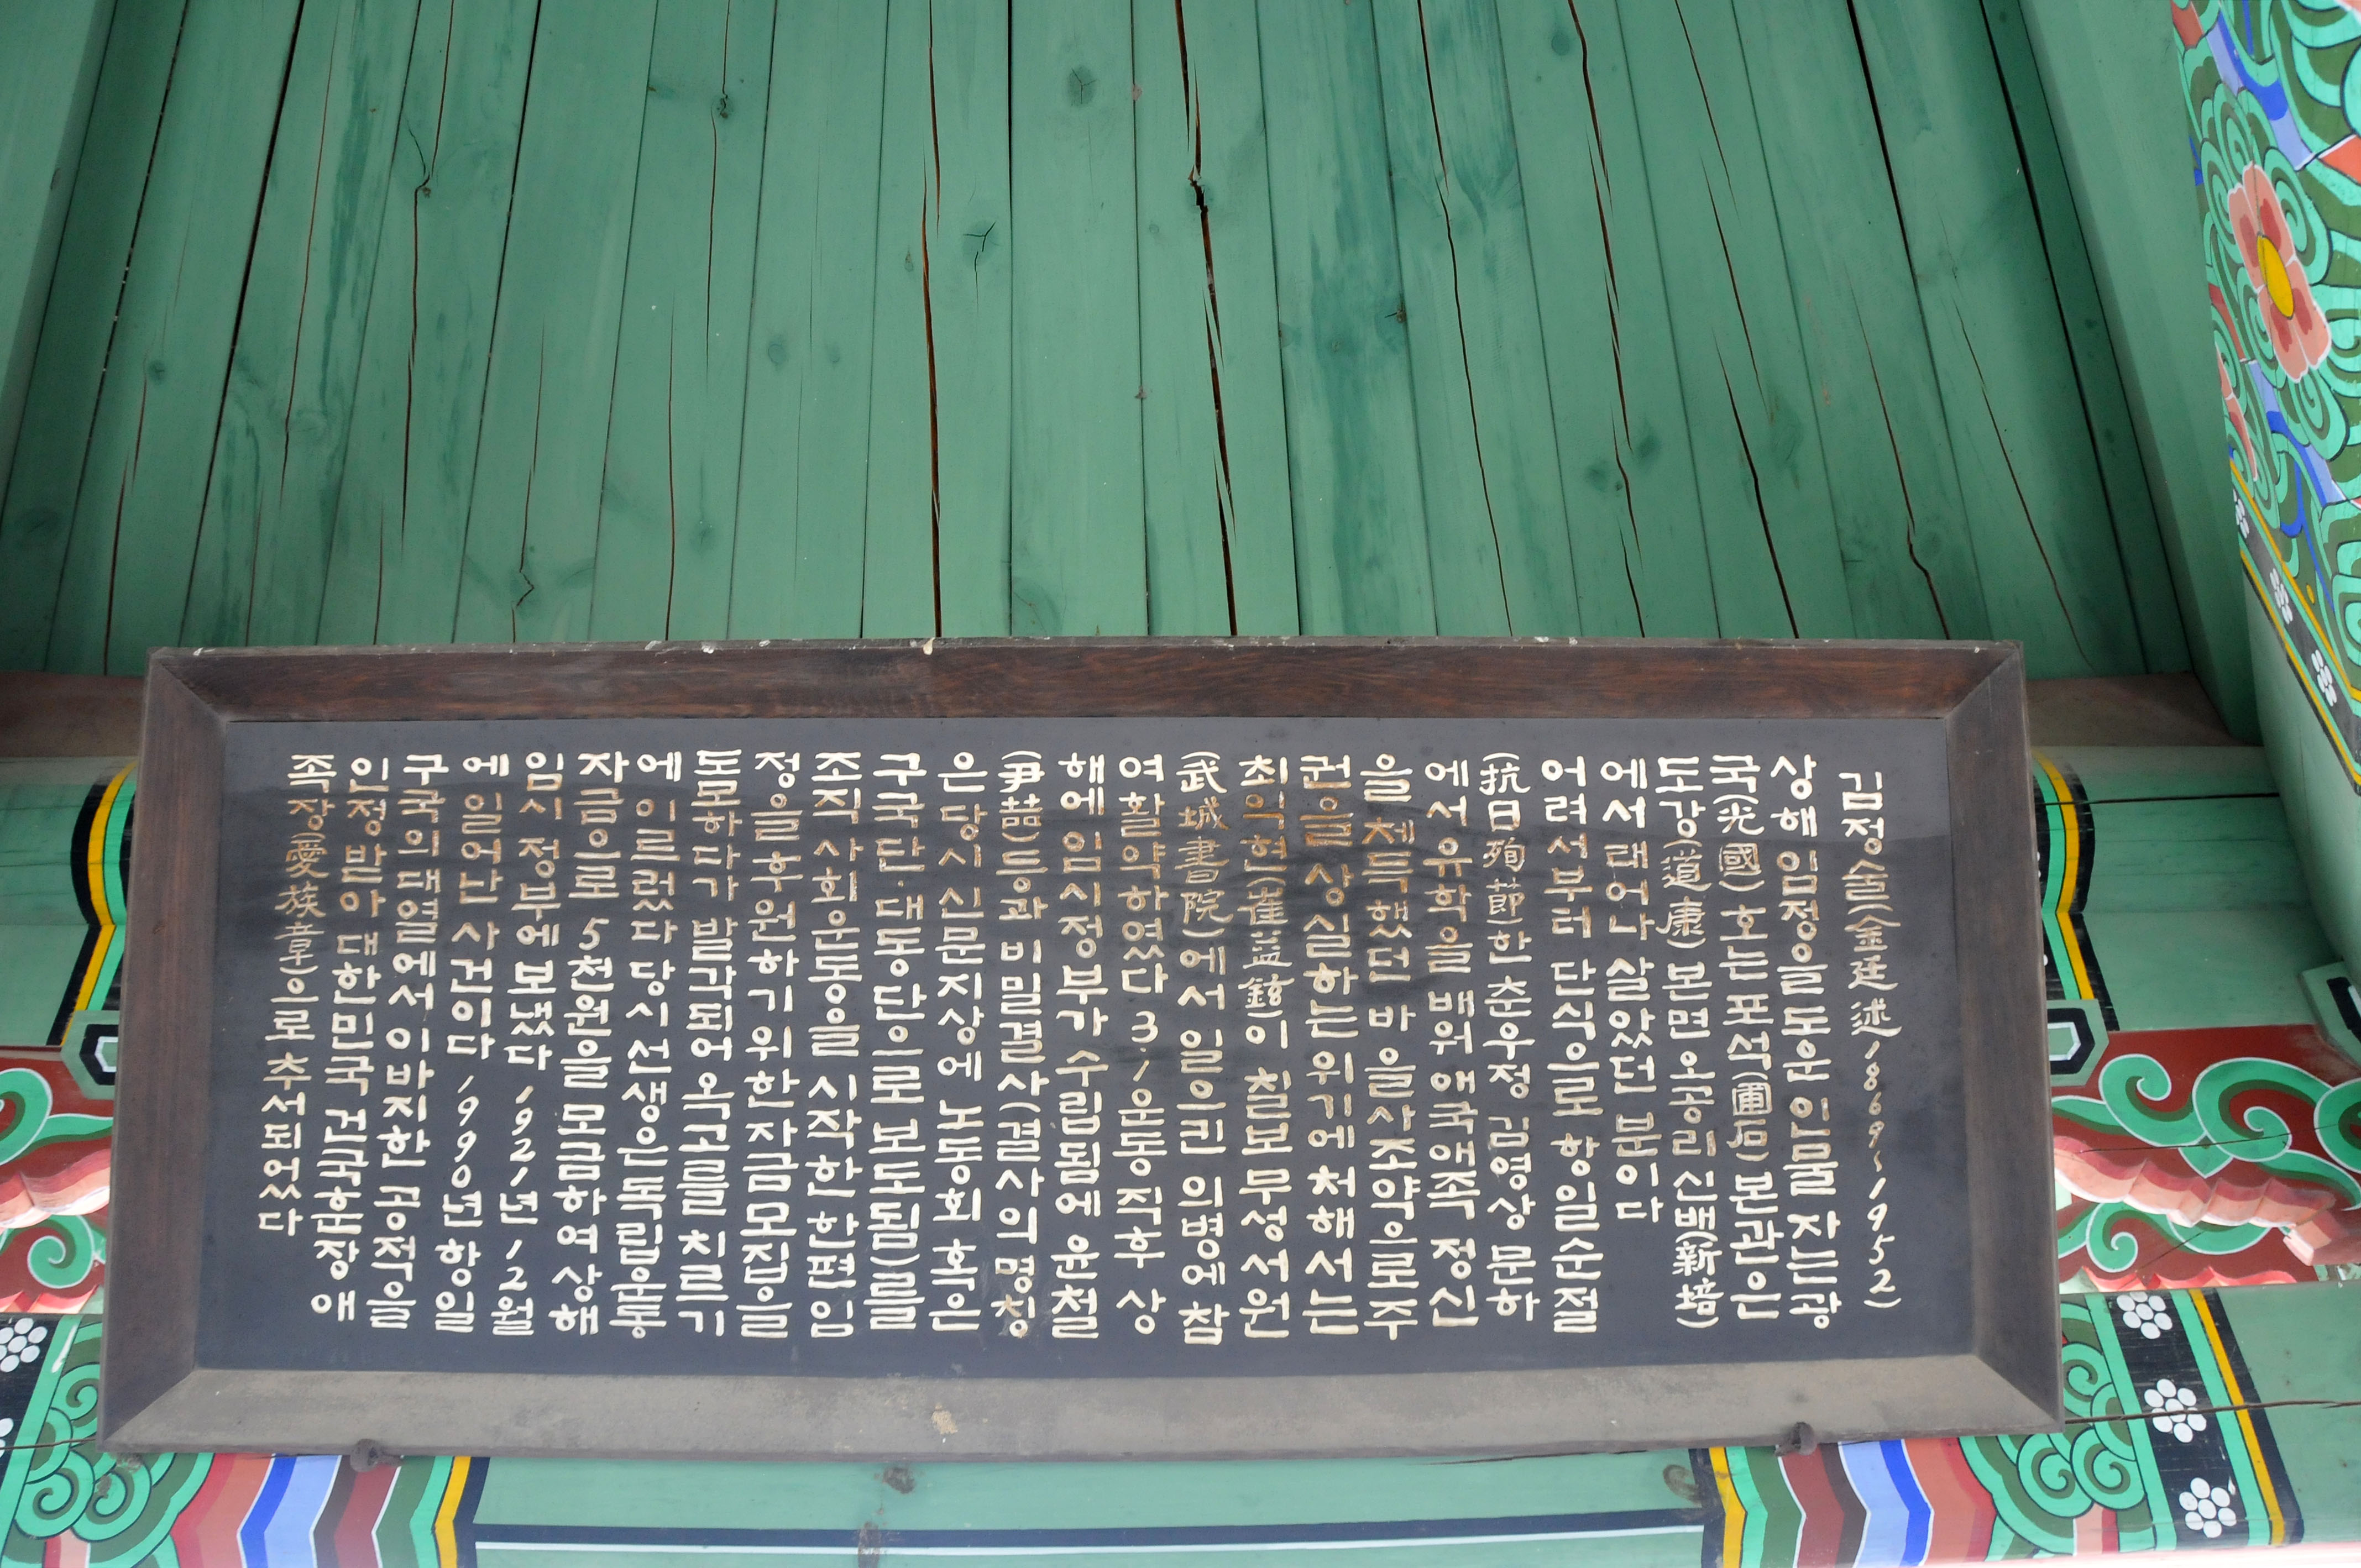 김정술(金廷述 1869~1952)
상해 임정을 도운 인물 자는 광
국(光國) 호는 포석(圃石) 본관은
도강(道康) 본면 오공리 신배(新培)
에서 태어나 살았던 분이다
어려서부터 단식으로 항일순절
(抗日殉節)한 춘우정 김영상 문하
에서 유학을 배워 애국애족 정신
을 체득했던 바 을사조약으로 주
권을 상실하는 위기에 처해서는
최익현(崔益鉉)이 칠보 무성서원
(武城書院)에서 일으킨 의병에 참
여 활약하였다 3·1운동 직후 상
해에 임시정부가 수립됨에 윤철
(尹喆)등과 비밀결사(결사의 명칭
은 당시 신문지상에 노동회 혹은
구국단·대동단으로 보도됨)를
조직 사회운동을 시작한 한편 임
정을 후원하기 위한 자금모집을
도모하다가 발각되어 옥고를 치르기
에 이르렀다 당시 선생은 독립운동
자금으로 5천원을 모금하여 상해
임시 정부에 보냈다 1921년 12월
에 일어난 사건이다 1990년 항일
구국의 대열에서 이바지한 공적을
인정받아 대한민국 건국훈장 애
족장(愛族章)으로 추서되었다